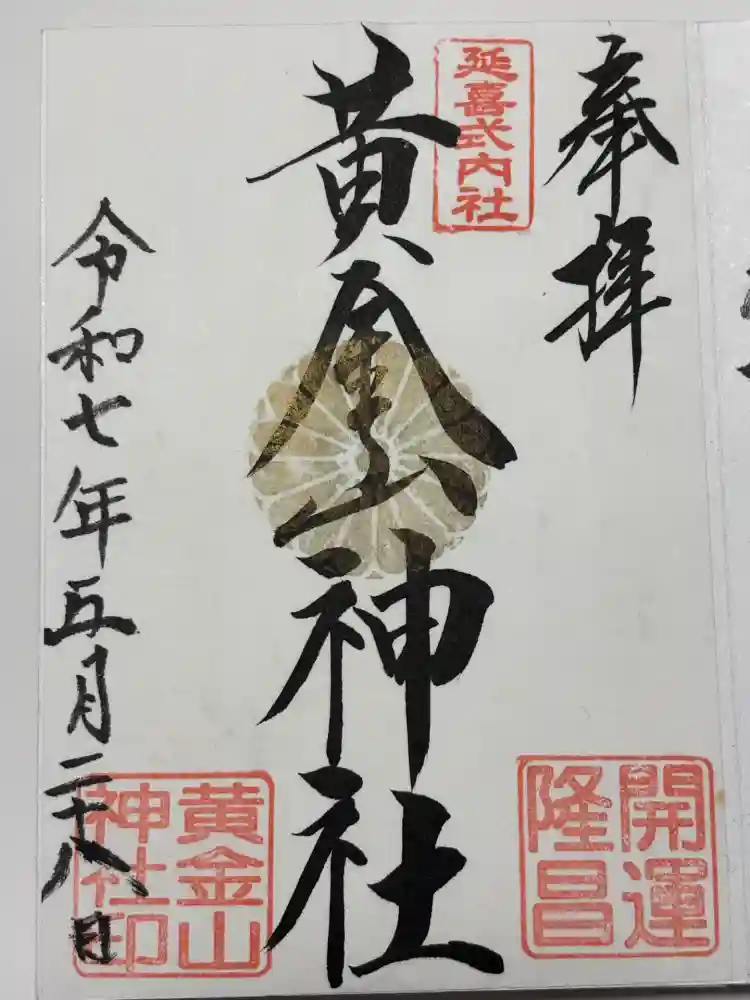 奉拝
開運
隆昌
延喜式内社
黄金山神社
令和七年五月二十八日
黄金山
神社印